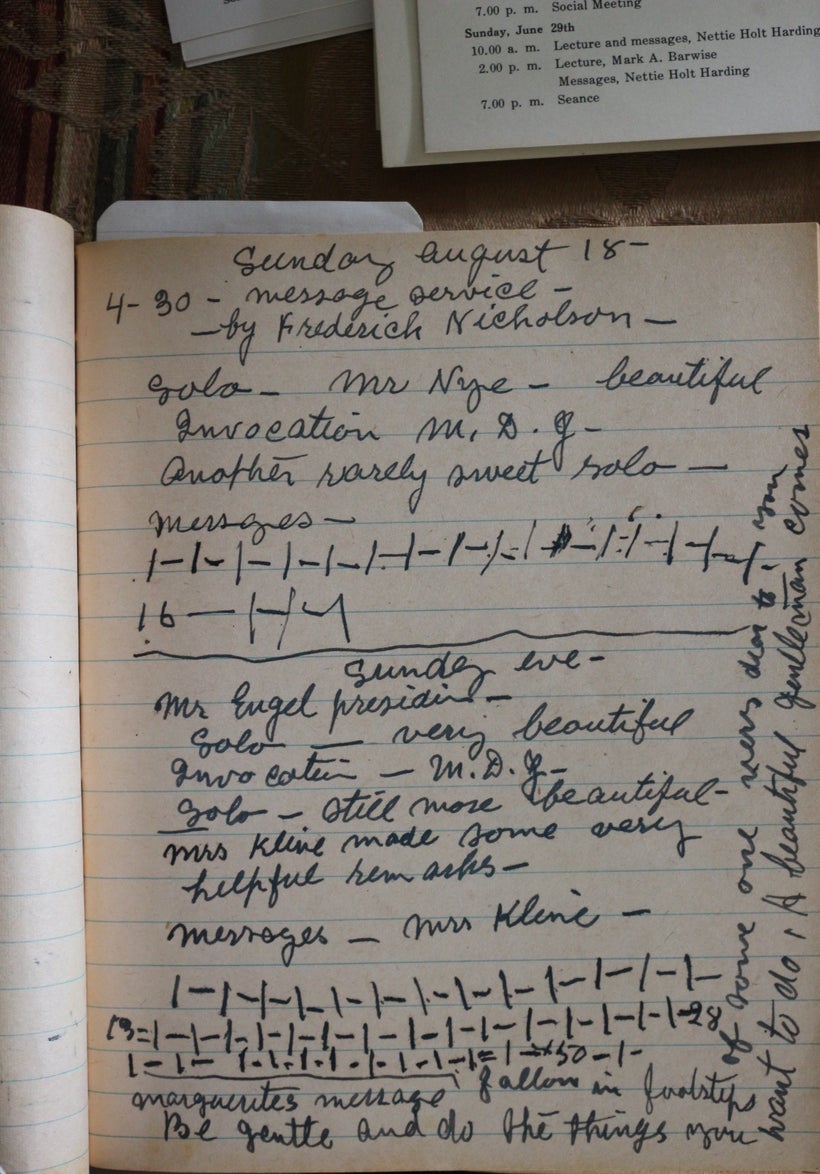 7.00 p. m. Social Meeting
Sunday, June 29th
10.00 a. m. Lecture and messages, Nettie Holt Harding
2.00 p. m. Lecture, Mark A. Barwise
Messages, Nettie Holt Harding
7.00 p. m. Seance
Sunday August 18-
4-30 - message service -
- by Frederick Nicholson -
Solo - Mr Nye - beautiful
Invocation M. D. J -
Another rarely sweet solo -
Messages -
16 -
Sunday eve -
Mr Engel presidin -
Solo - very beautiful
Invocation - M. D. J -
Solo - still more beautiful -
Mrs Kline made some very
helpful remarks -
Messages - Mrs Kline -
13=
28
50
marguerites message follow in footsteps
Be gentle and do the things you
want to do, A beautiful gentleman comes
of some one very dear to you